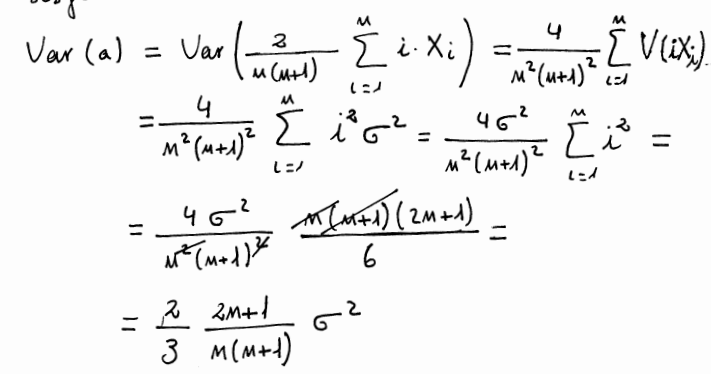 Var(a) = Var(2/(n(n+1)) ∑_{i=1}^{n} i·Xᵢ) = 4/(n²(n+1)²) ∑_{i=1}^{n} V(iXᵢ).
= 4/(n²(n+1)²) ∑_{i=1}^{n} i²σ² = 4σ²/(n²(n+1)²) ∑_{i=1}^{n} i² =
= 4σ²/(n²(n+1)²) n(n+1)(2n+1)/6 =
= 2/3 (2n+1)/(n(n+1)) σ²